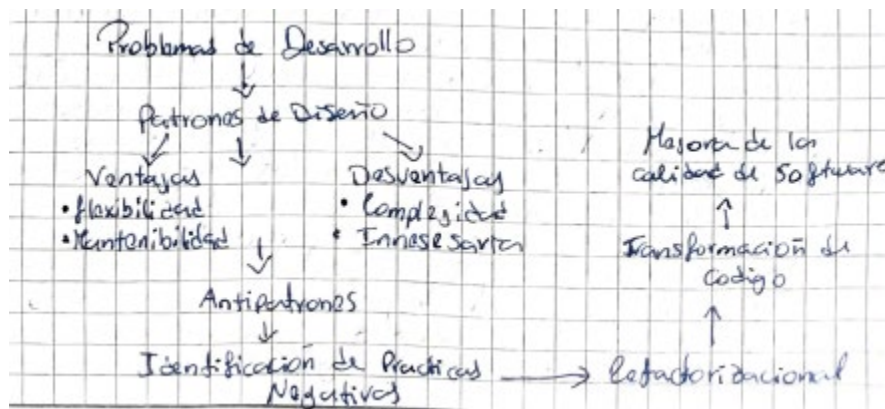 Problemas de Desarrollo
Patrones de Diseño
Ventajas
• flexibilidad
• Mantenibilidad
Desventajas
• Complejidad
• Innesesaria
Antipatrones
Identificación de Practicas
Negativas
Refactorizacional
Transformación de
Codigo
Mejora de la
calidad de Software